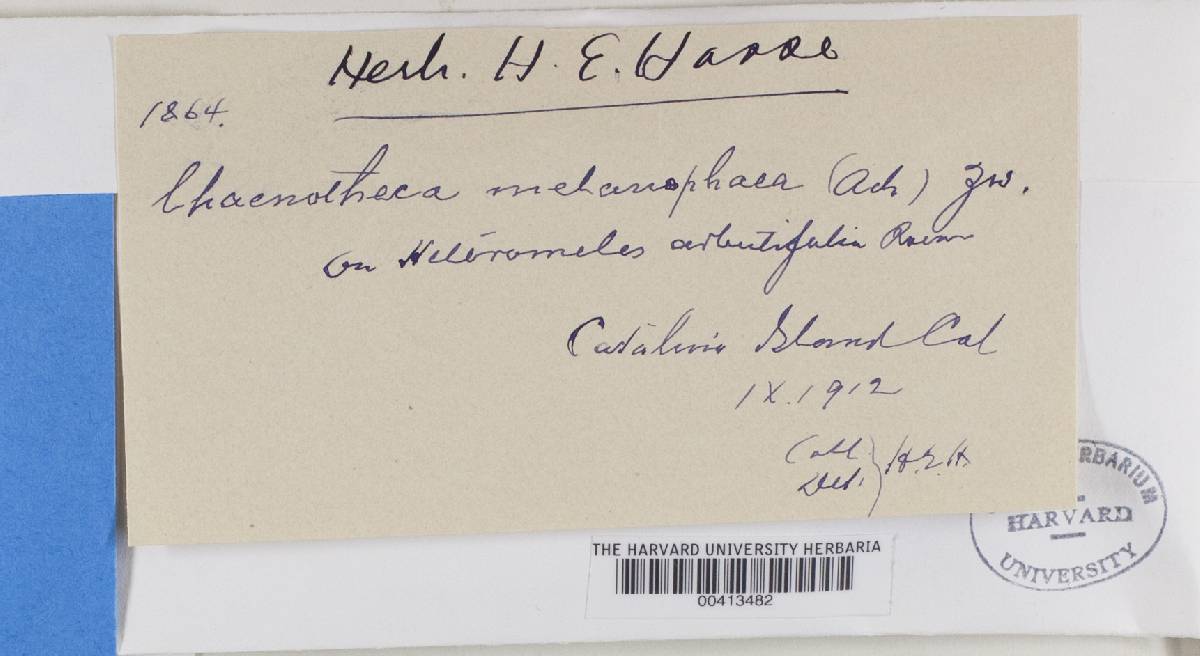 Herb. H. E. Hasse
1864.
Chaenotheca melanophaea (Ach) Zw.
On Heteromeles arbutifolia Roem
Catalina Island Cal
IX. 1912
Coll.
Det. } H. E. H.
THE HARVARD UNIVERSITY HERBARIA
00413482
HARVARD
UNIVERSITY